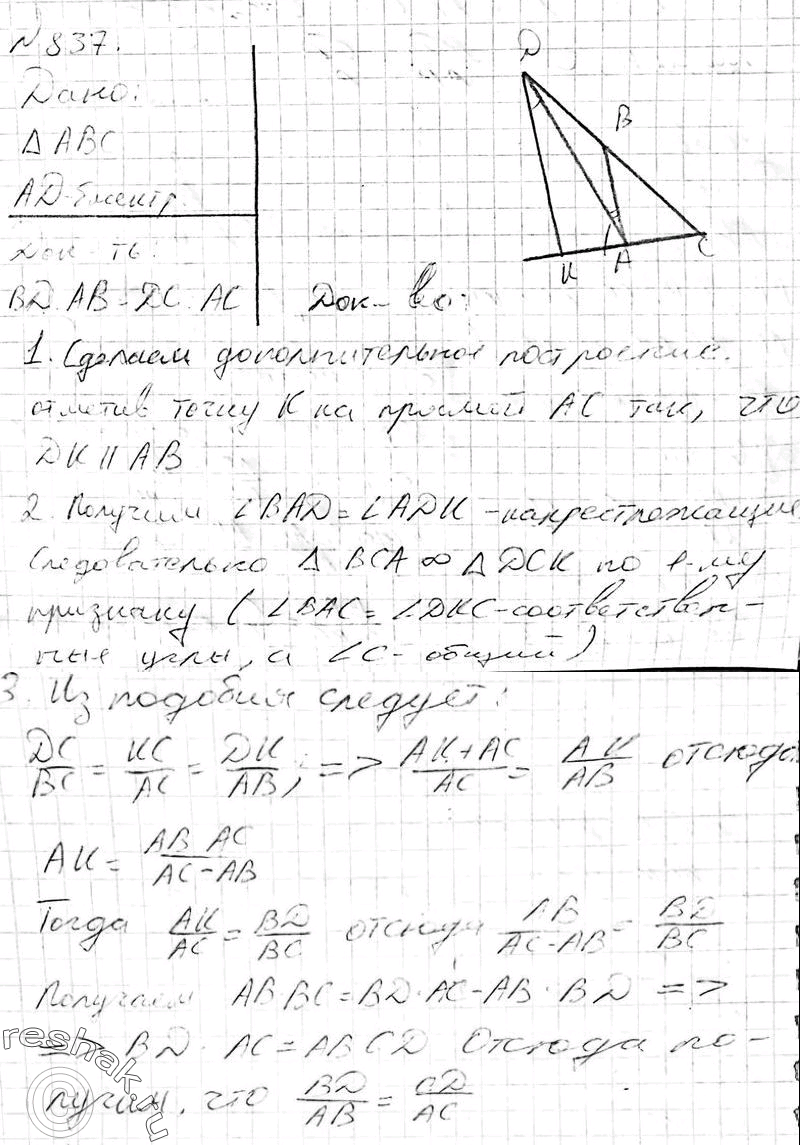 N 837.
Дано:
Δ ABC
AD-биектр.
Док-ть:
BD:AB=DC:AC
D
B
K
A
C
Док-во:
1. Сделаем дополнительное построение.
отметив точку K на прямой AC так, что
DK || AB
2 Получим ∠BAD=∠ADK -накрестлежащие
следовательно Δ BCA ∞ Δ DCK по 1-му
признаку (∠BAC=∠DKC-соответствен-
ные углы, а ∠C-общий)
3. Из подобия следует:
DC/BC = KC/AC = DK/AB; => AK+AC/AC = AK/AB отсюда
AK = AB AC/AC-AB
Тогда AK/AC = BD/BC отсюда AB/AC-AB = BD/BC
Получаем AB BC=BD·AC-AB·BD =>
=> BD · AC=AB CD Отсюда по-
лучим, что BD/AB = CD/AC
reshak.ru